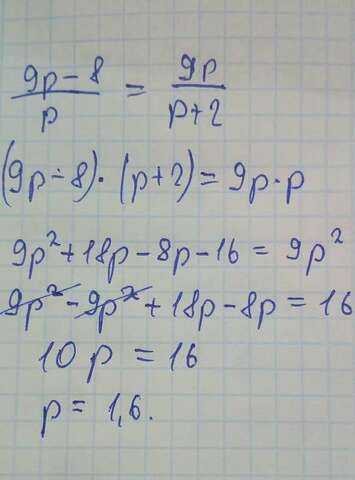 (9p-8)/p = 9p/(p+2)
(9p-8)·(p+2)=9p·p
9p²+18p-8p-16=9p²
9p²-9p²+18p-8p=16
10p=16
p=1,6.